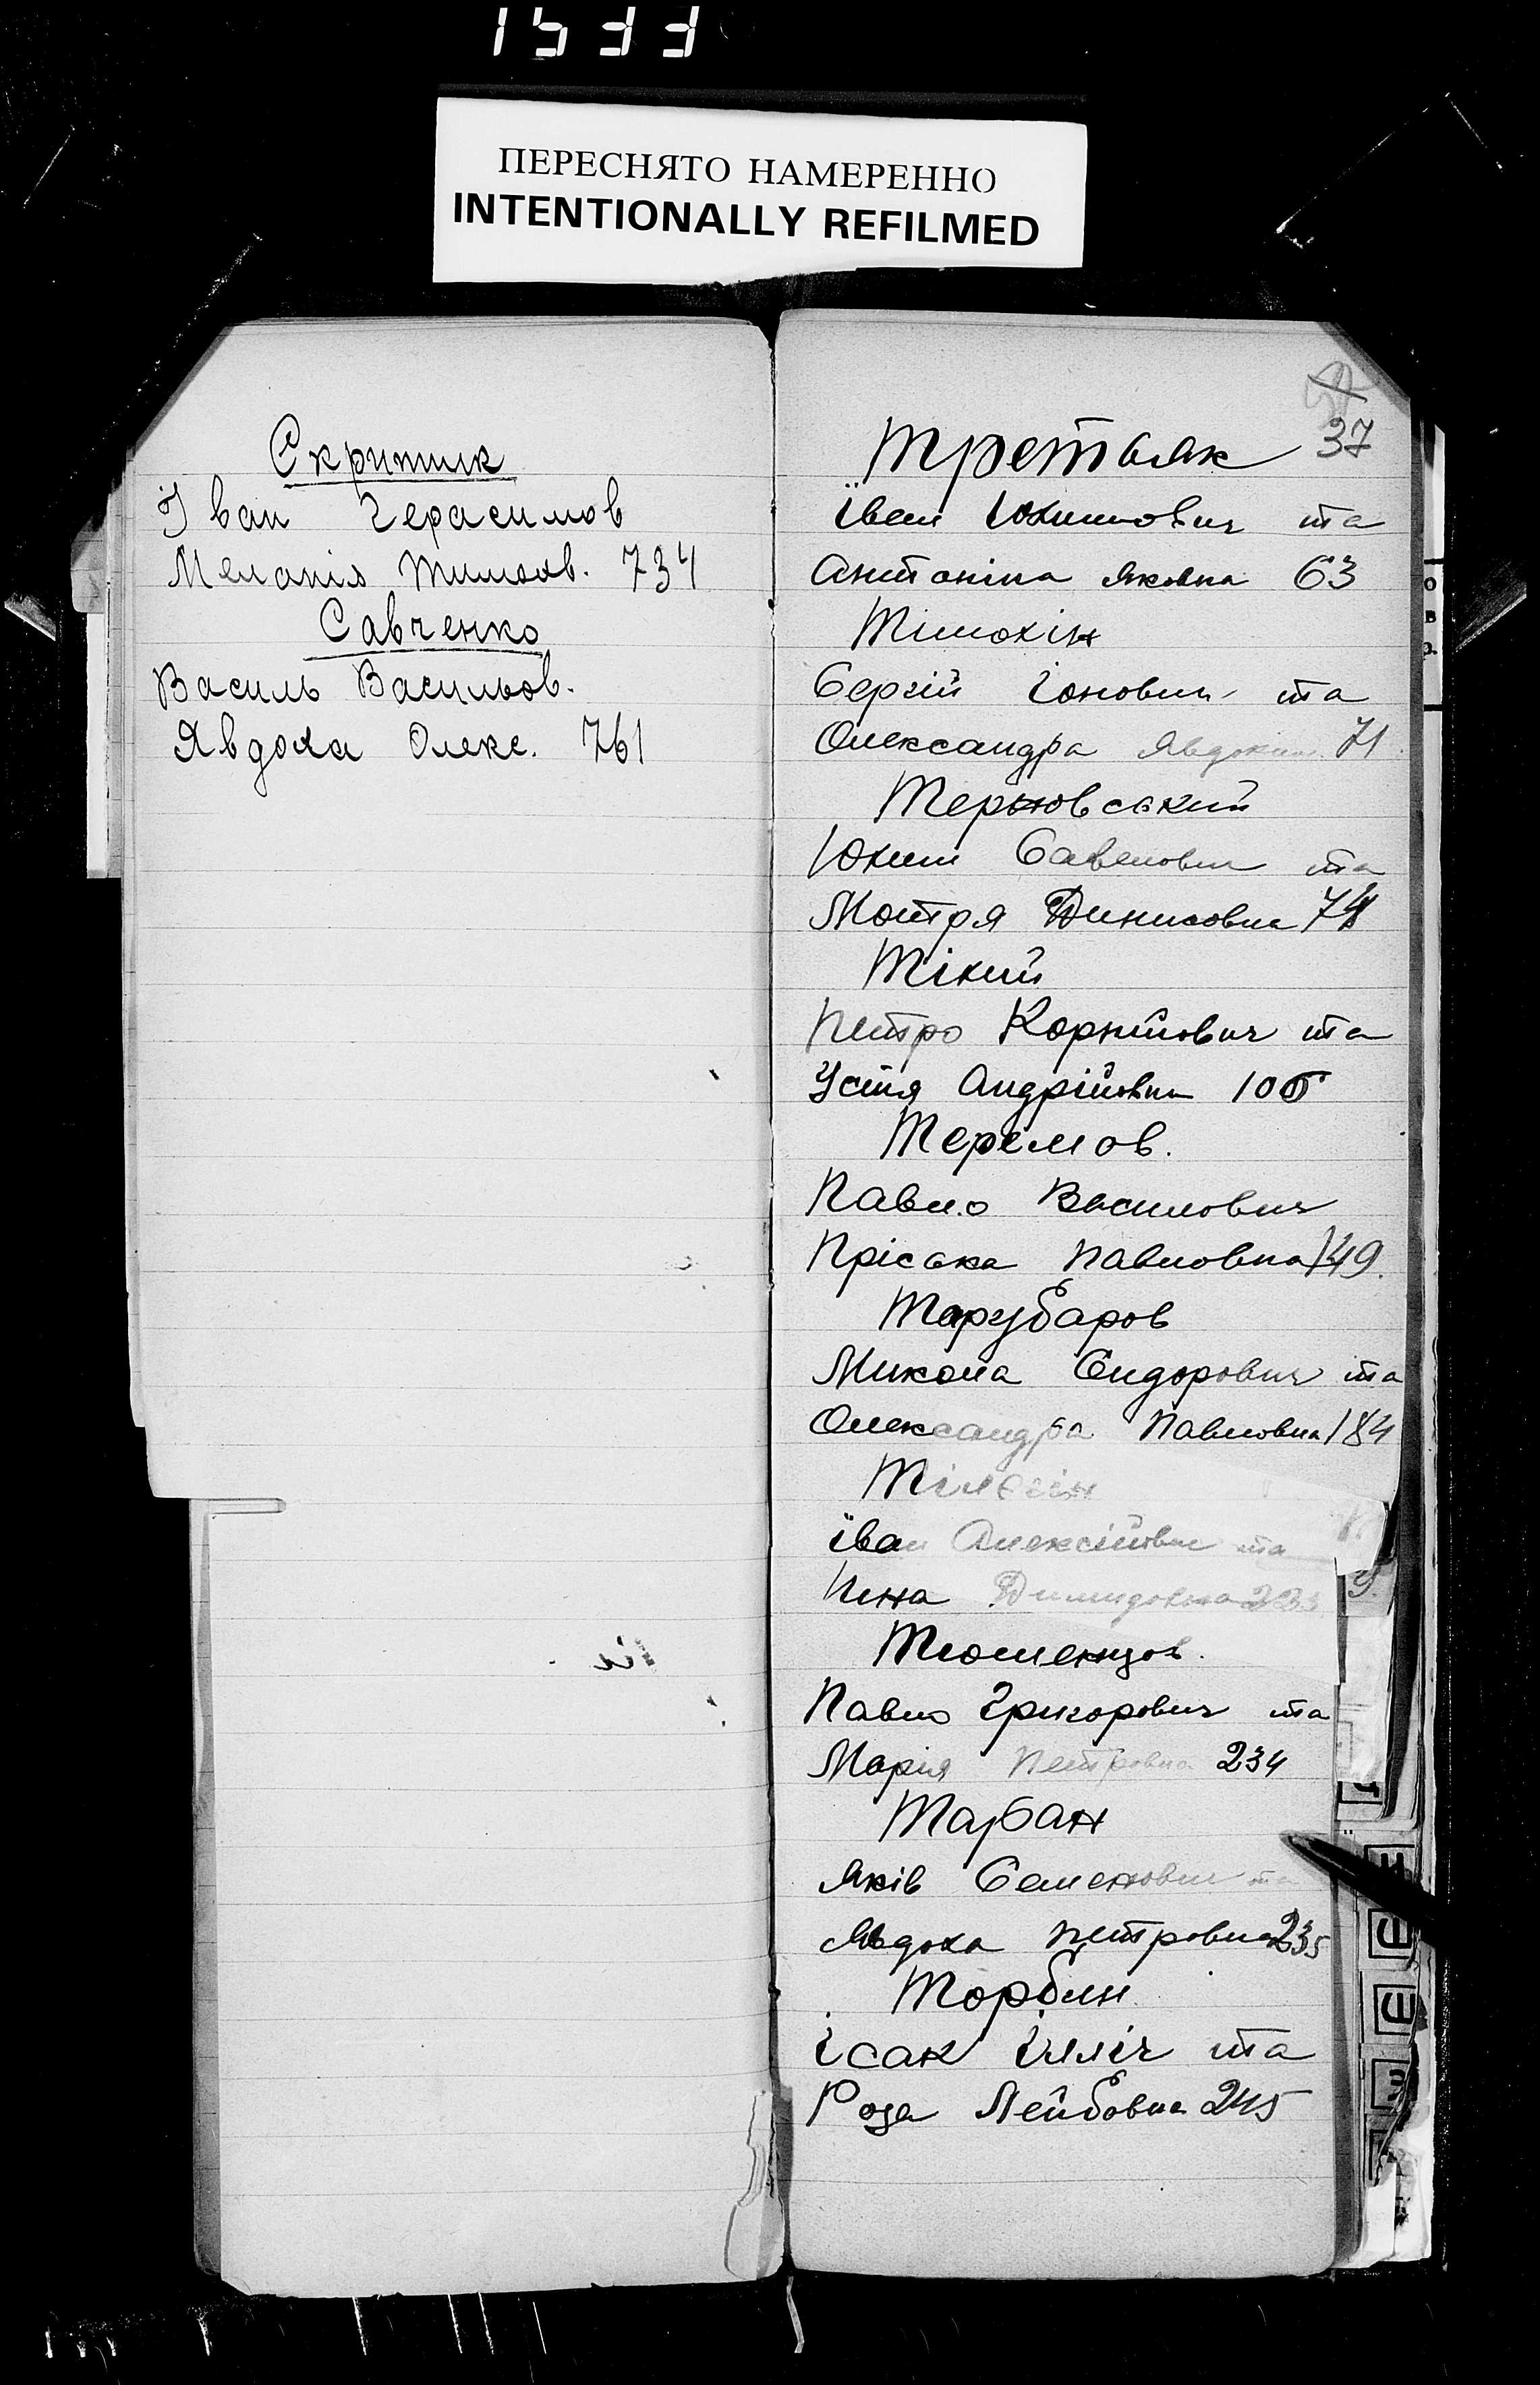 1533
ПЕРЕСНЯТО НАМЕРЕННО
INTENTIONALLY REFILMED
Скрипник
Іван Герасимов
Меланія Тимохв. 734
Савченко
Василь Васильов.
Явдоха Олекс. 761
37
Третьяк
Іван Юхимович та
Антоніна Яковна 63
Тимохін
Сергій Іонович та
Олександра Явдоким 71
Терновський
Юхим Савелович та
Мотря Динисовна 74
Тіхий
Петро Корнійович та
Устя Андрійовна 105
Теремов.
Павло Василович
Пріська Павловна 149.
Тарубаров
Микола Сидорович та
Олександра Павловна 184
Іван Олексійович та
Инна Димидовна 233
Тюменцов.
Павло Григорович та
Марія Петровна 234
Таран
Яків Семенович та
Явдоха Петровна 235
Торбин
Ісак Ілліч та
Роза Лейбовна 245